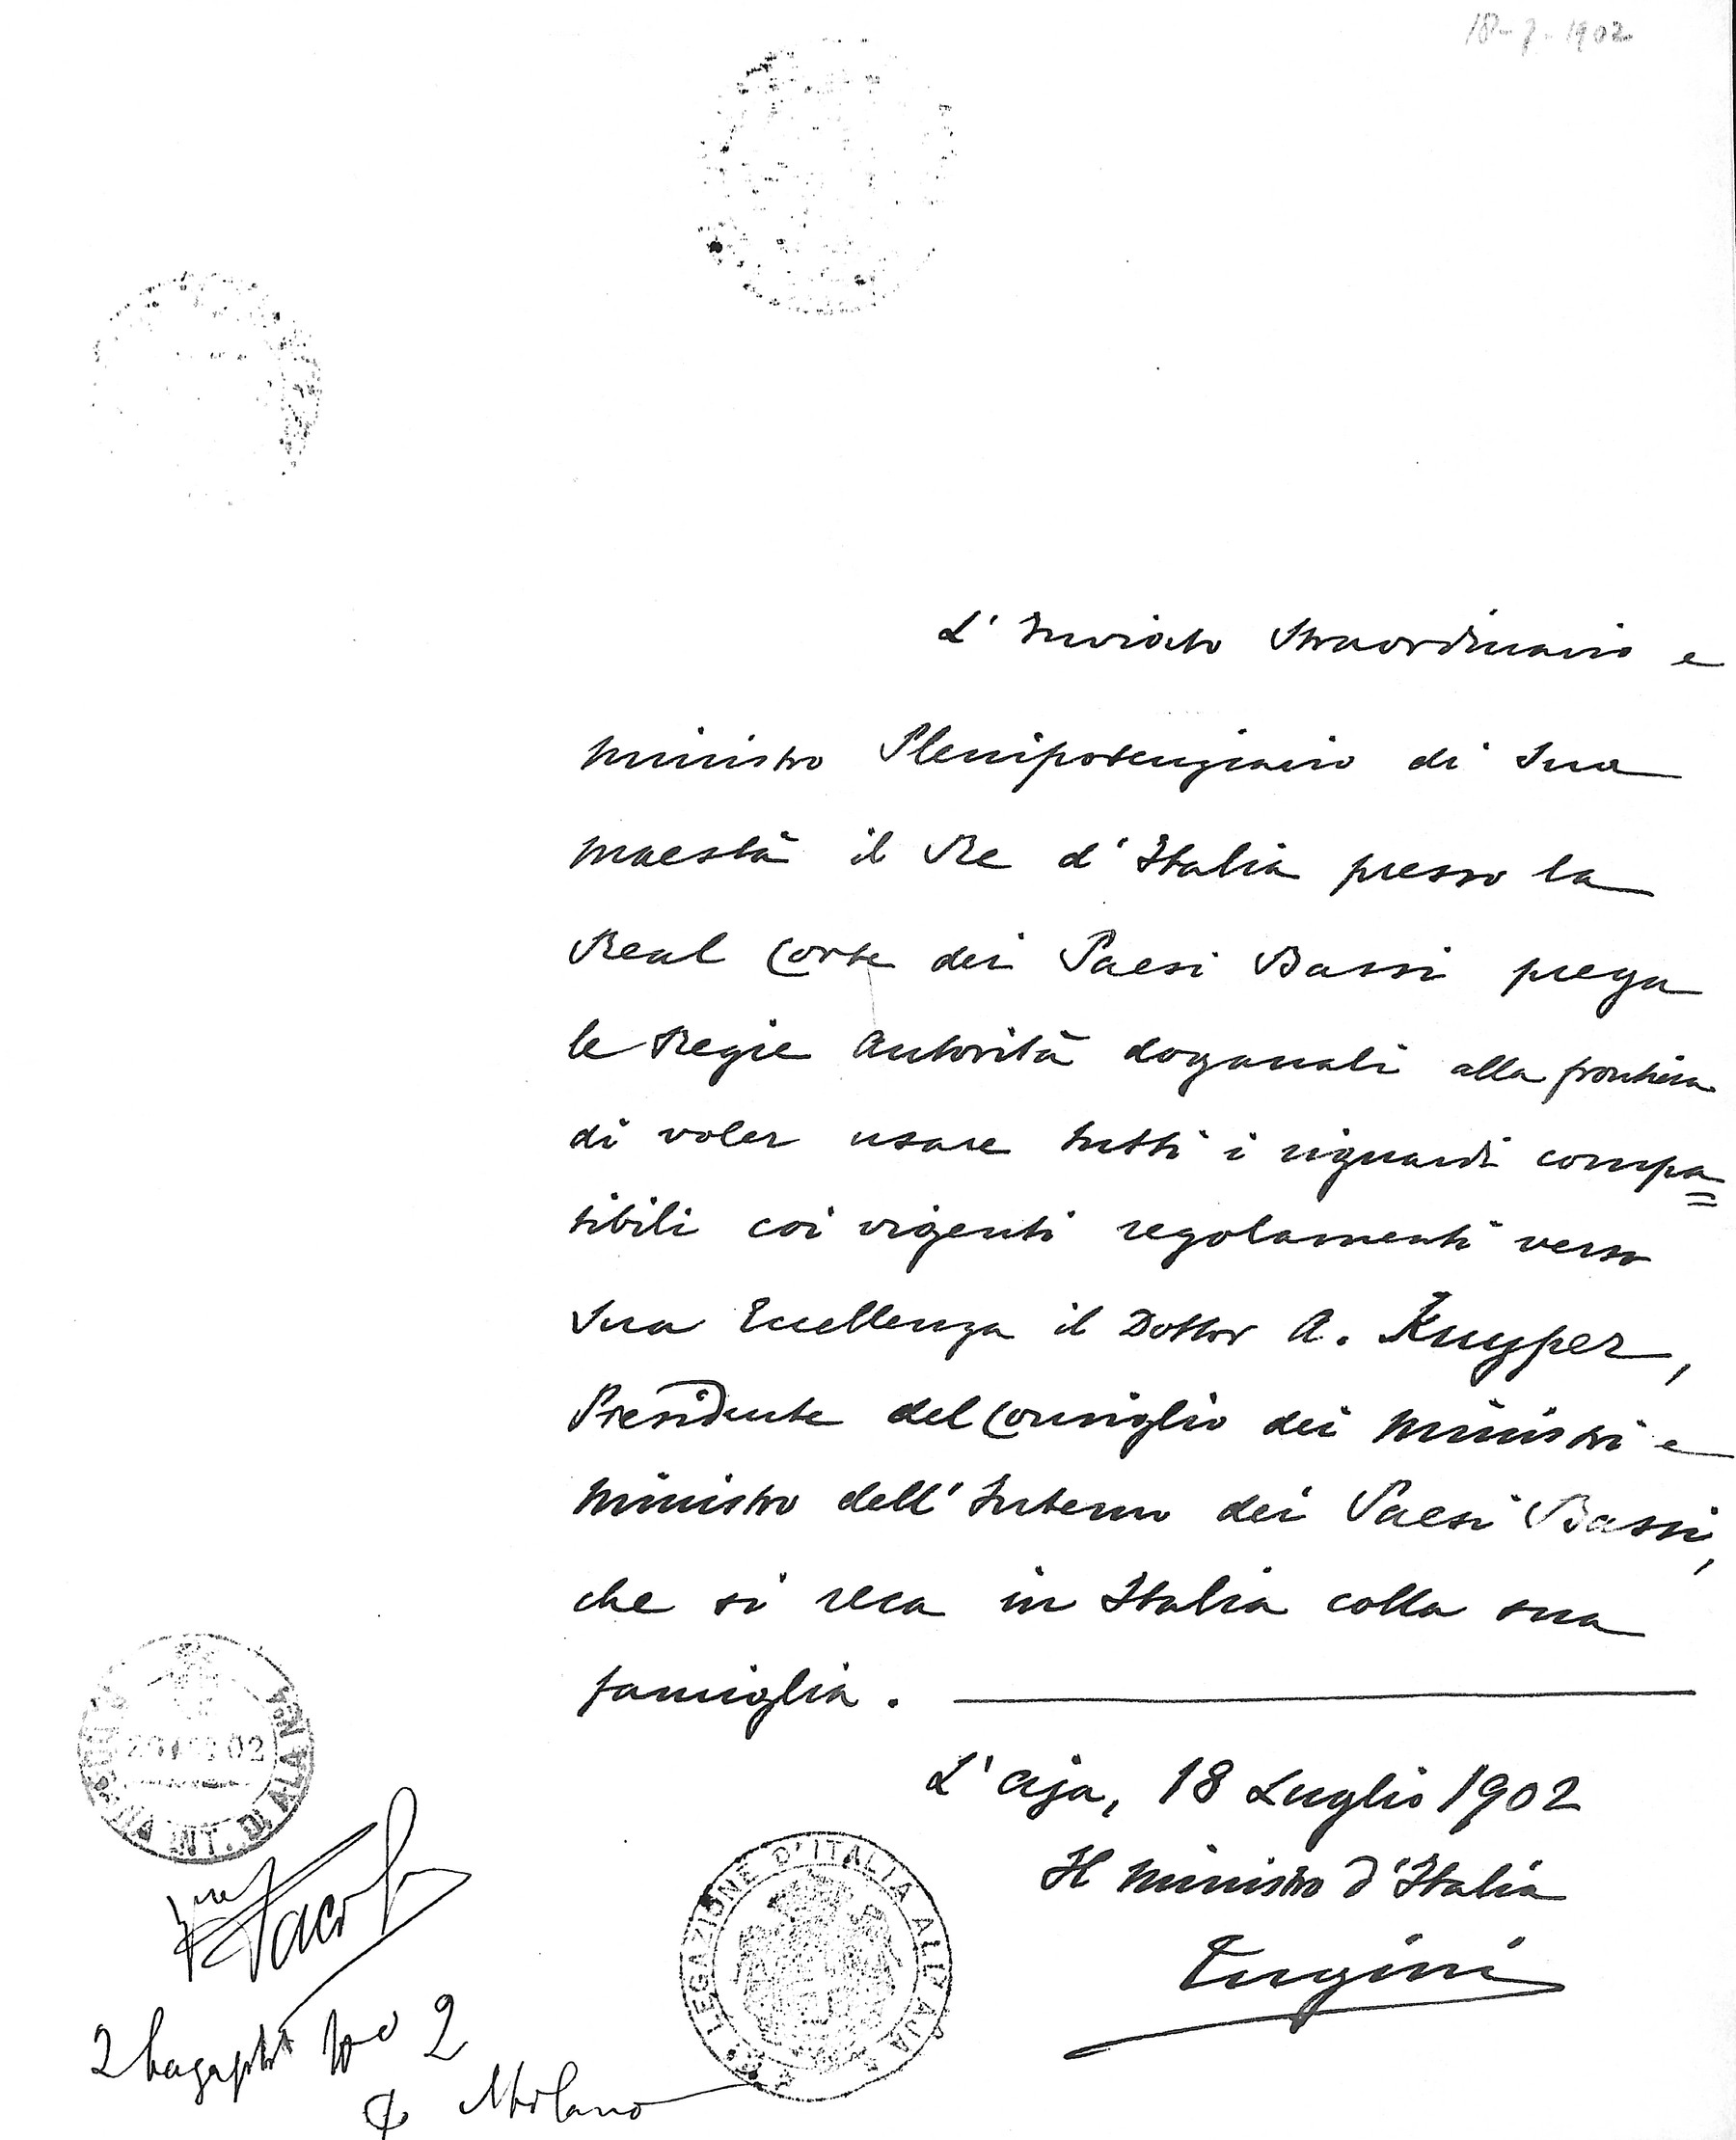 18-7-1902
L' Inviato Straordinario e
Ministro Plenipotenziario di Sua
Maestà il Re d'Italia presso la
Real Corte dei Paesi Bassi prega
le Regie Autorità doganali alla frontiera
di voler usare tutti i riguardi compa=
tibili coi vigenti regolamenti verso
Sua Eccellenza il Dottor A. Kuyper,
Presidente del Consiglio dei Ministri e
Ministro dell'Interno dei Paesi Bassi,
che si reca in Italia colla sua
famiglia.
L'Aja, 18 Luglio 1902
Il Ministro d'Italia
Tugini
LEGAZIONE D'ITALIA ALL'AJA
02
INT. DI ALA
2 No 2
Milano